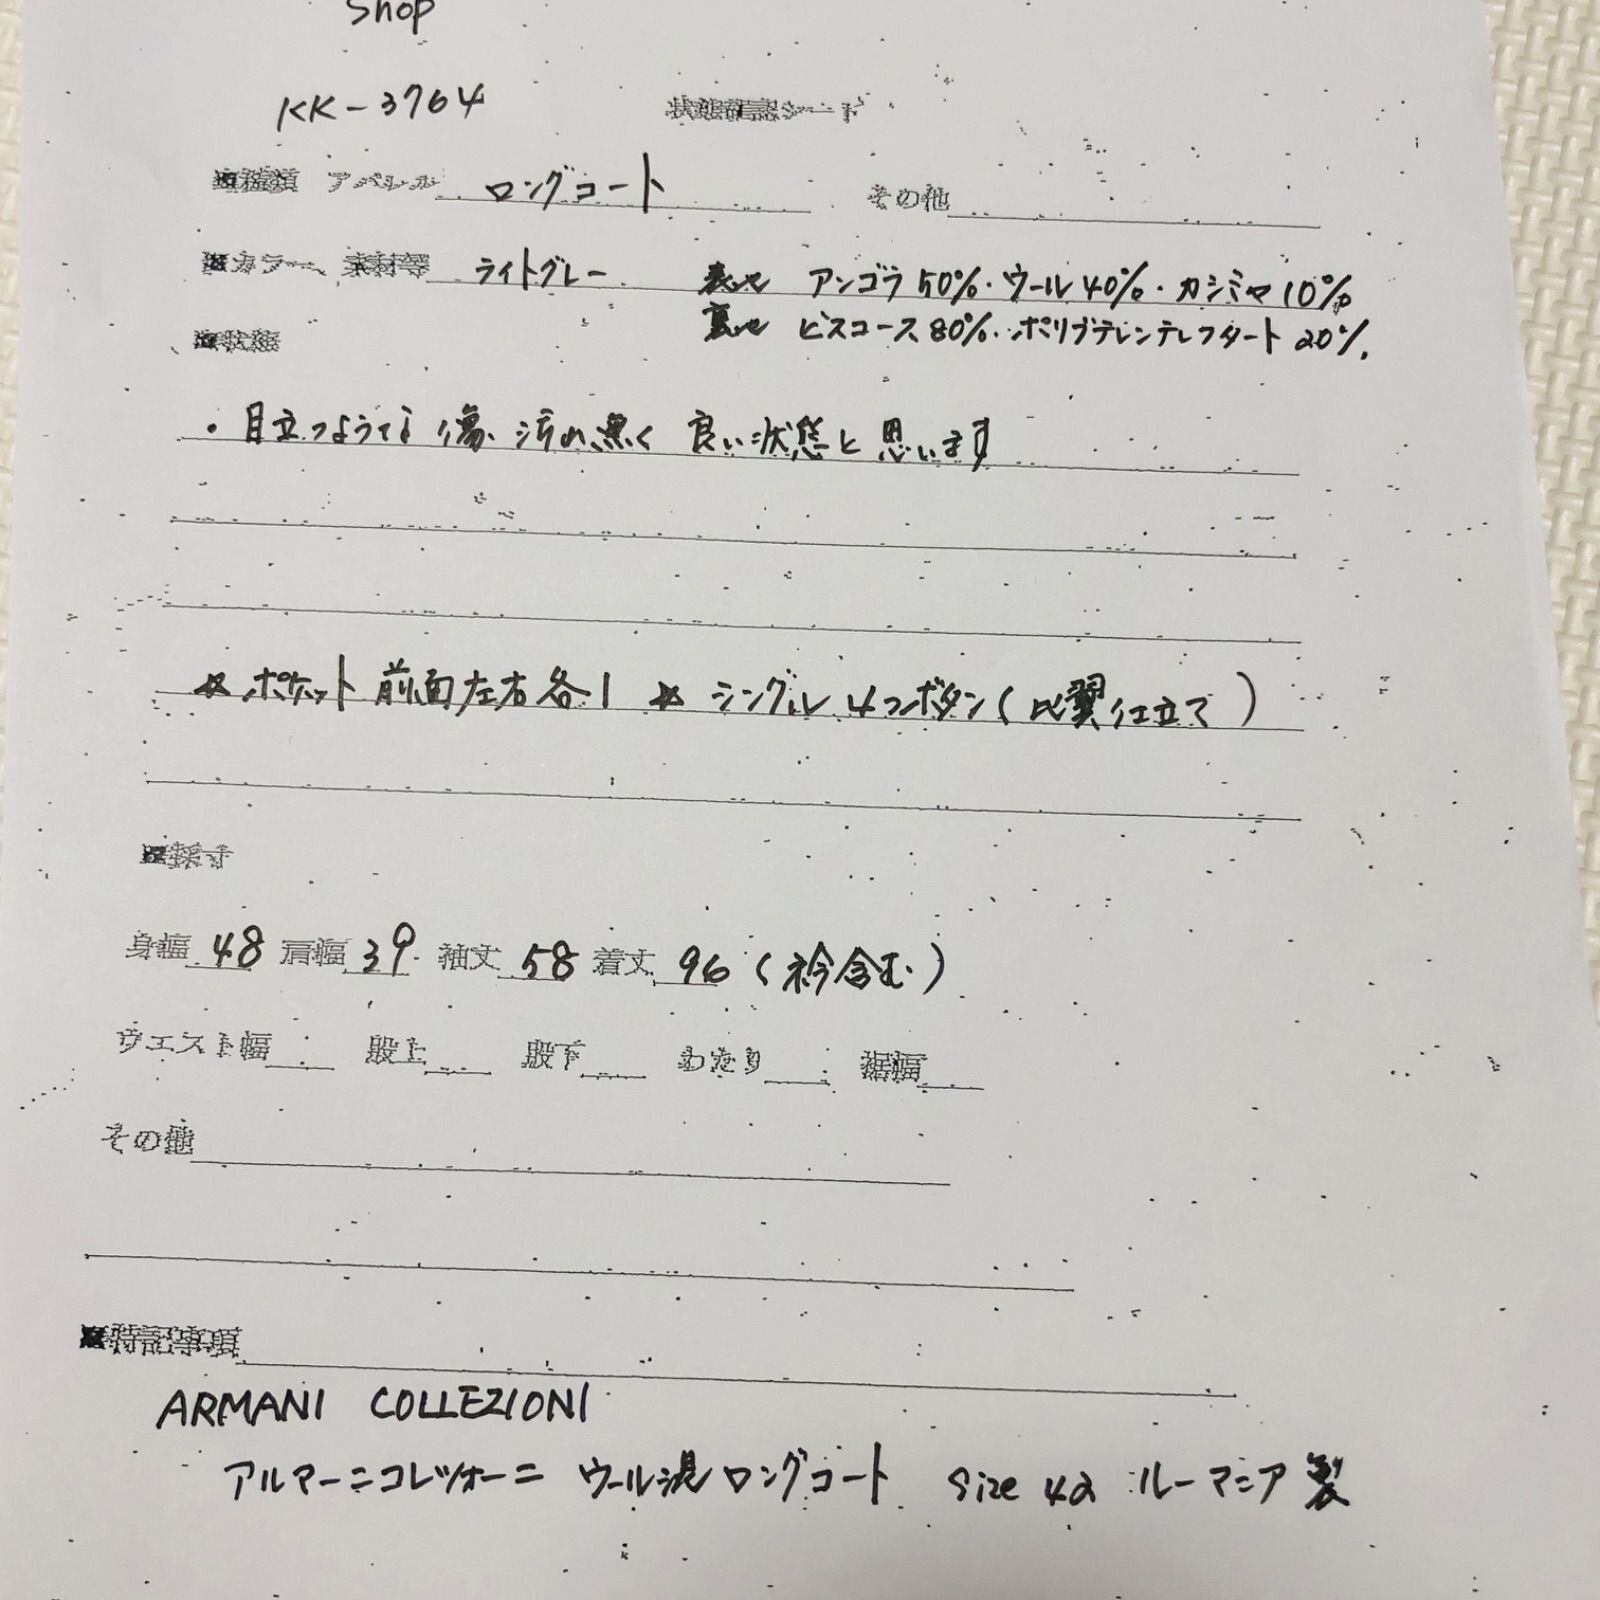 Shop
KK-3764 状態確認シート
■種類 アパレル ロングコート その他
■カラー、素材等 ライトグレー 表地 アンゴラ50%・ウール40%・カシミヤ10%
裏地 ビスコース80%・ポリブテレンテレフタート20%
■状態
・目立つような傷、汚れ無く 良い状態と思います
☆ポケット前面左右各1 ☆シングル4つボタン(比翼仕立て)
■採寸
身幅 48 肩幅 39 袖丈 58 着丈 96 (衿含む)
ウエスト幅 股上 股下 わたり 裾幅
その他
■特記事項
ARMANI COLLEZIONI
アルマーニコレツォーニ ウール混ロングコート Size 42 ルーマニア製